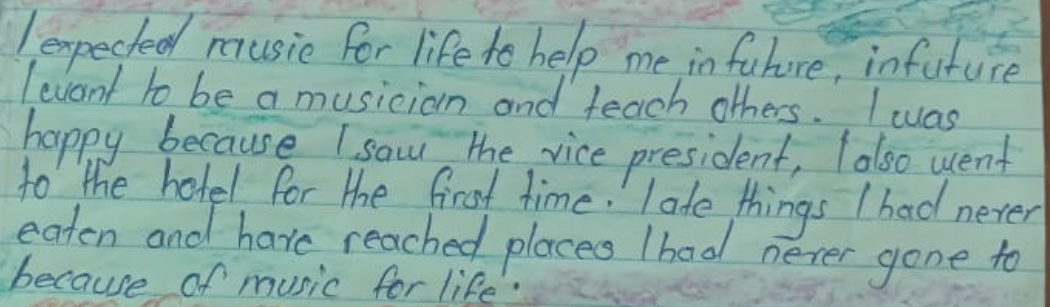 I expected music for life to help me in future, infuture
I want to be a musician and teach others. I was
happy because I saw the vice president, I also went
to the hotel for the first time. I ate things I had never
eaten and have reached places I had never gone to
because of music for life.